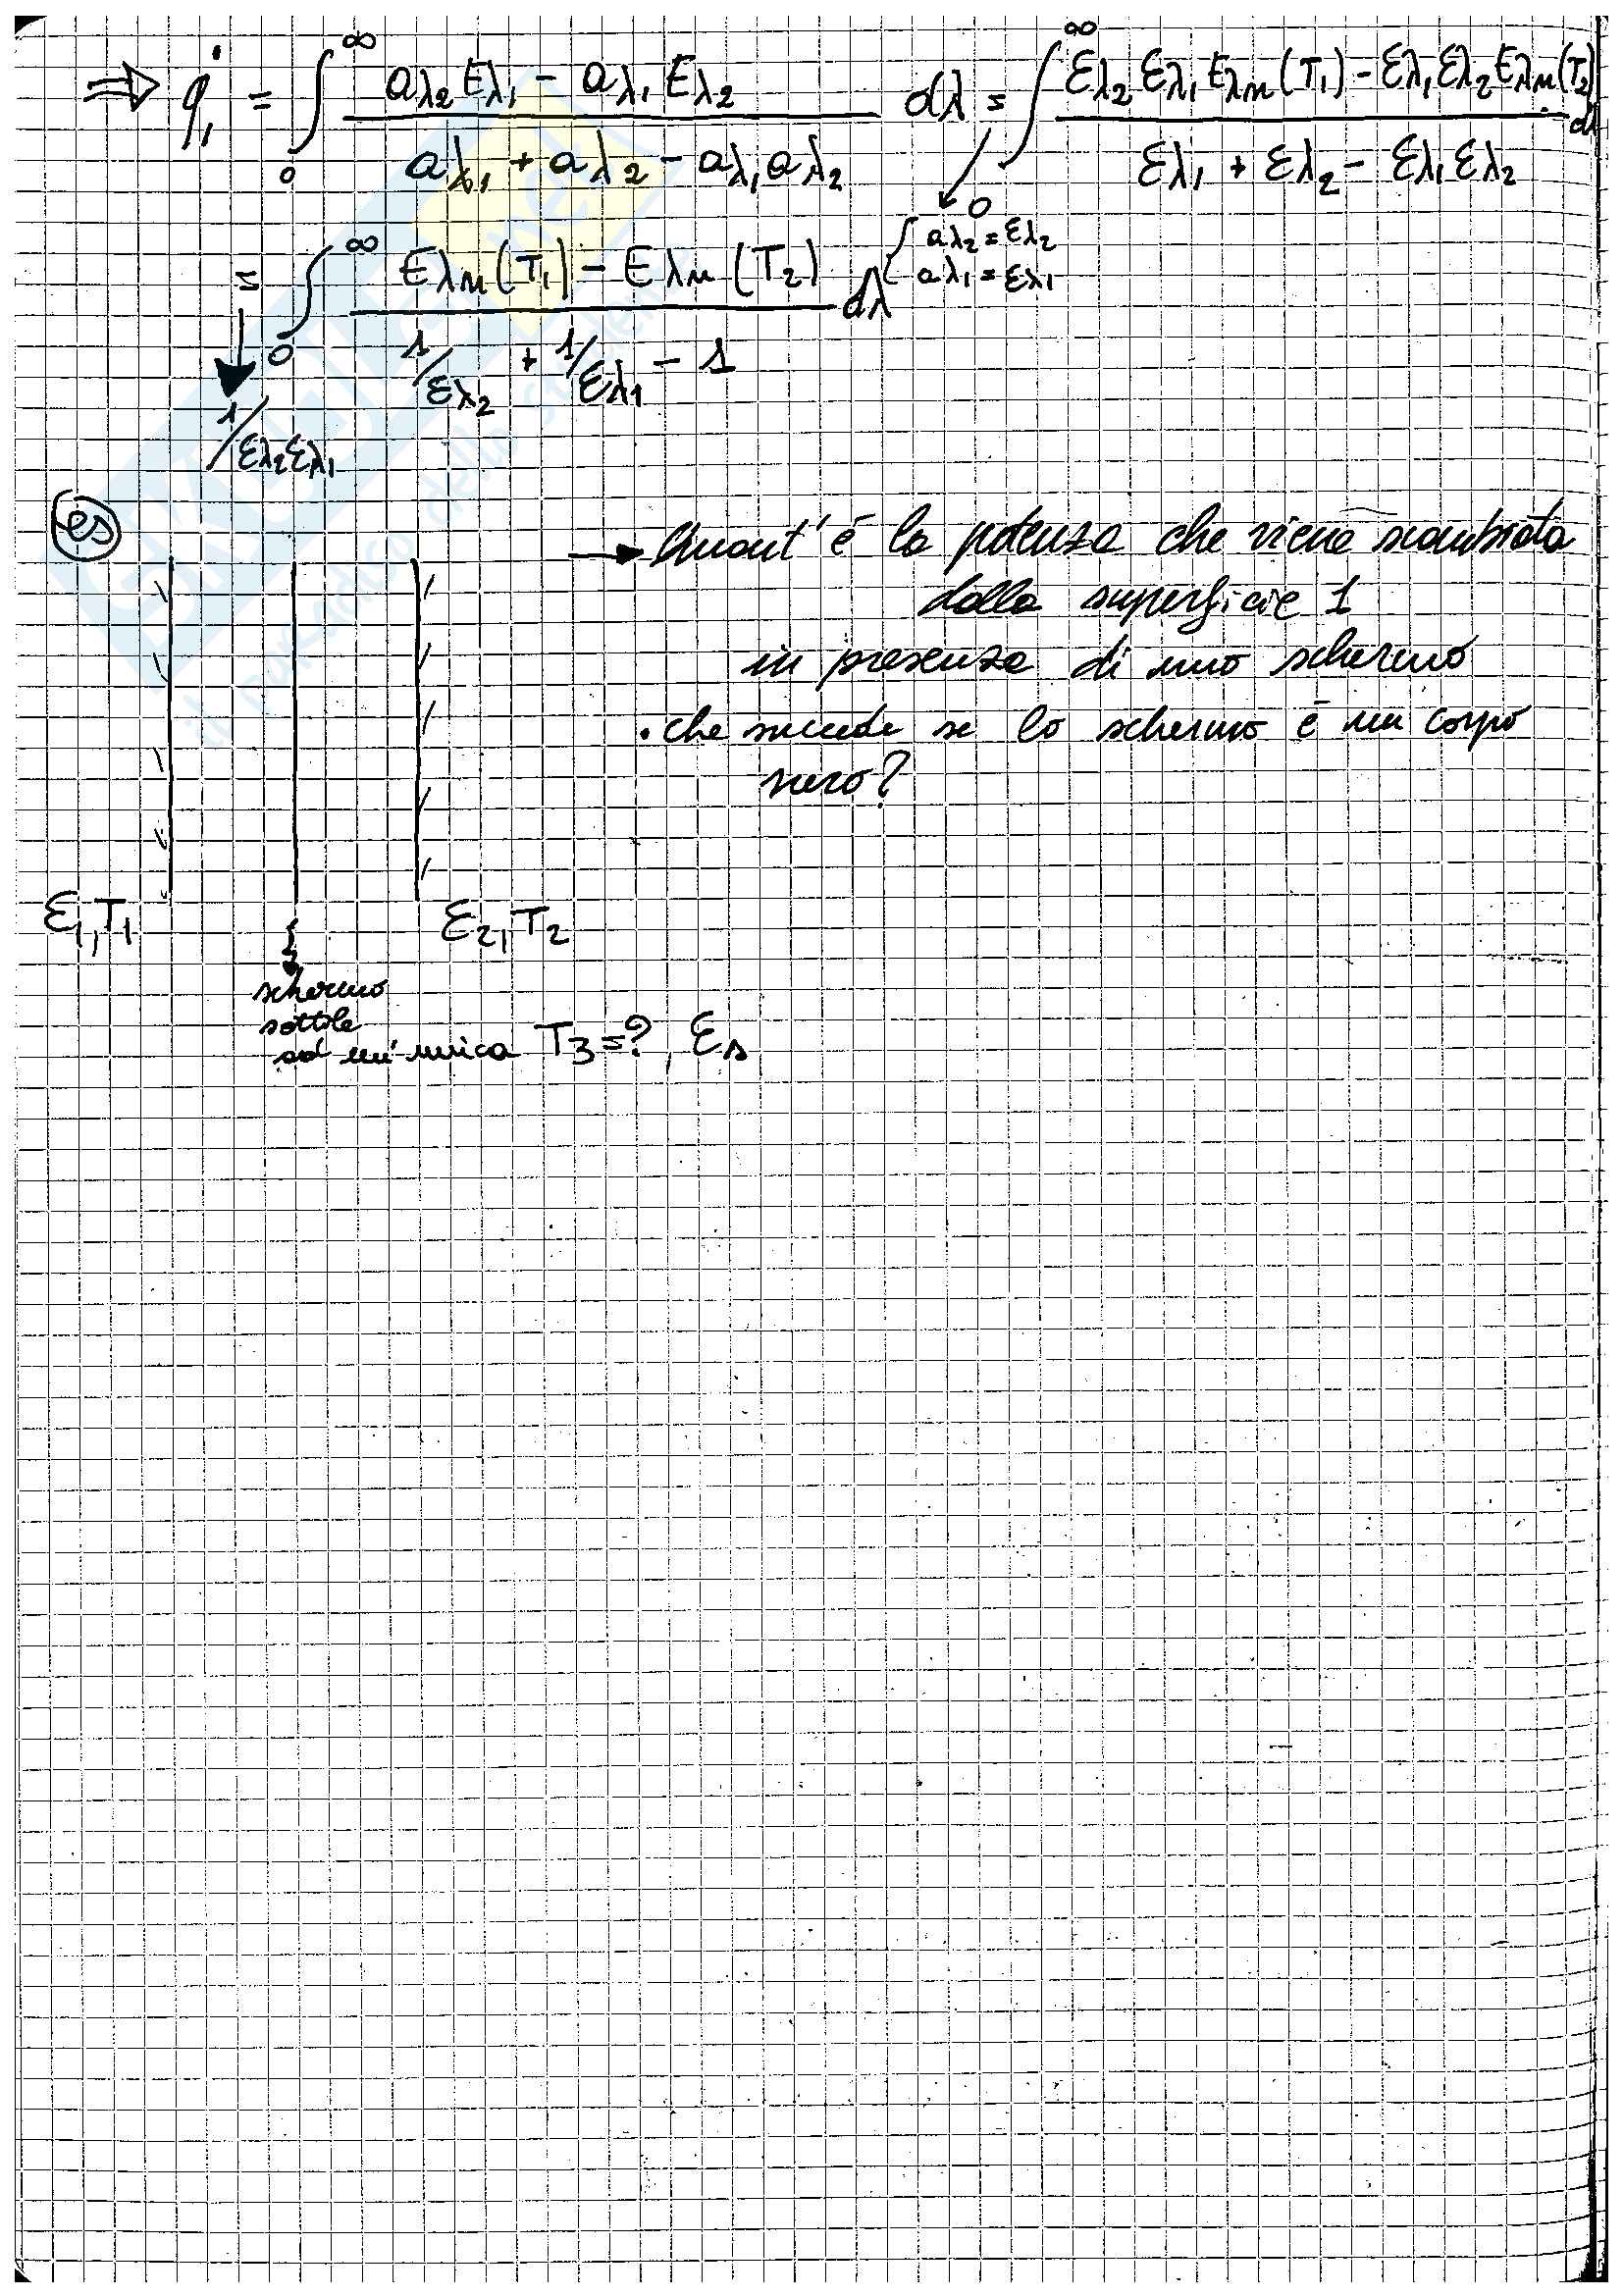 ⇒ q̇₁ = ∫₀^∞ (aλ₂ Eλ₁ − aλ₁ Eλ₂) / (aλ₁ + aλ₂ − aλ₁ aλ₂) dλ = ∫₀^∞ (Ɛλ₂ Ɛλ₁ Eλn(T₁) − Ɛλ₁ Ɛλ₂ Eλn(T₂)) / (Ɛλ₁ + Ɛλ₂ − Ɛλ₁ Ɛλ₂) dλ
aλ₂ = Ɛλ₂
aλ₁ = Ɛλ₁
= ∫₀^∞ (Eλn(T₁) − Eλn(T₂)) / (1/Ɛλ₂ + 1/Ɛλ₁ − 1) dλ
1/Ɛλ₂Ɛλ₁
es
→ Quant'è la potenza che viene scambiata
dalla superficie 1
in presenza di uno schermo
• che succede se lo schermo è un corpo
nero?
Ɛ₁, T₁
Ɛ₂, T₂
schermo
sottile
ad un'unica T₃ = ?, Ɛs